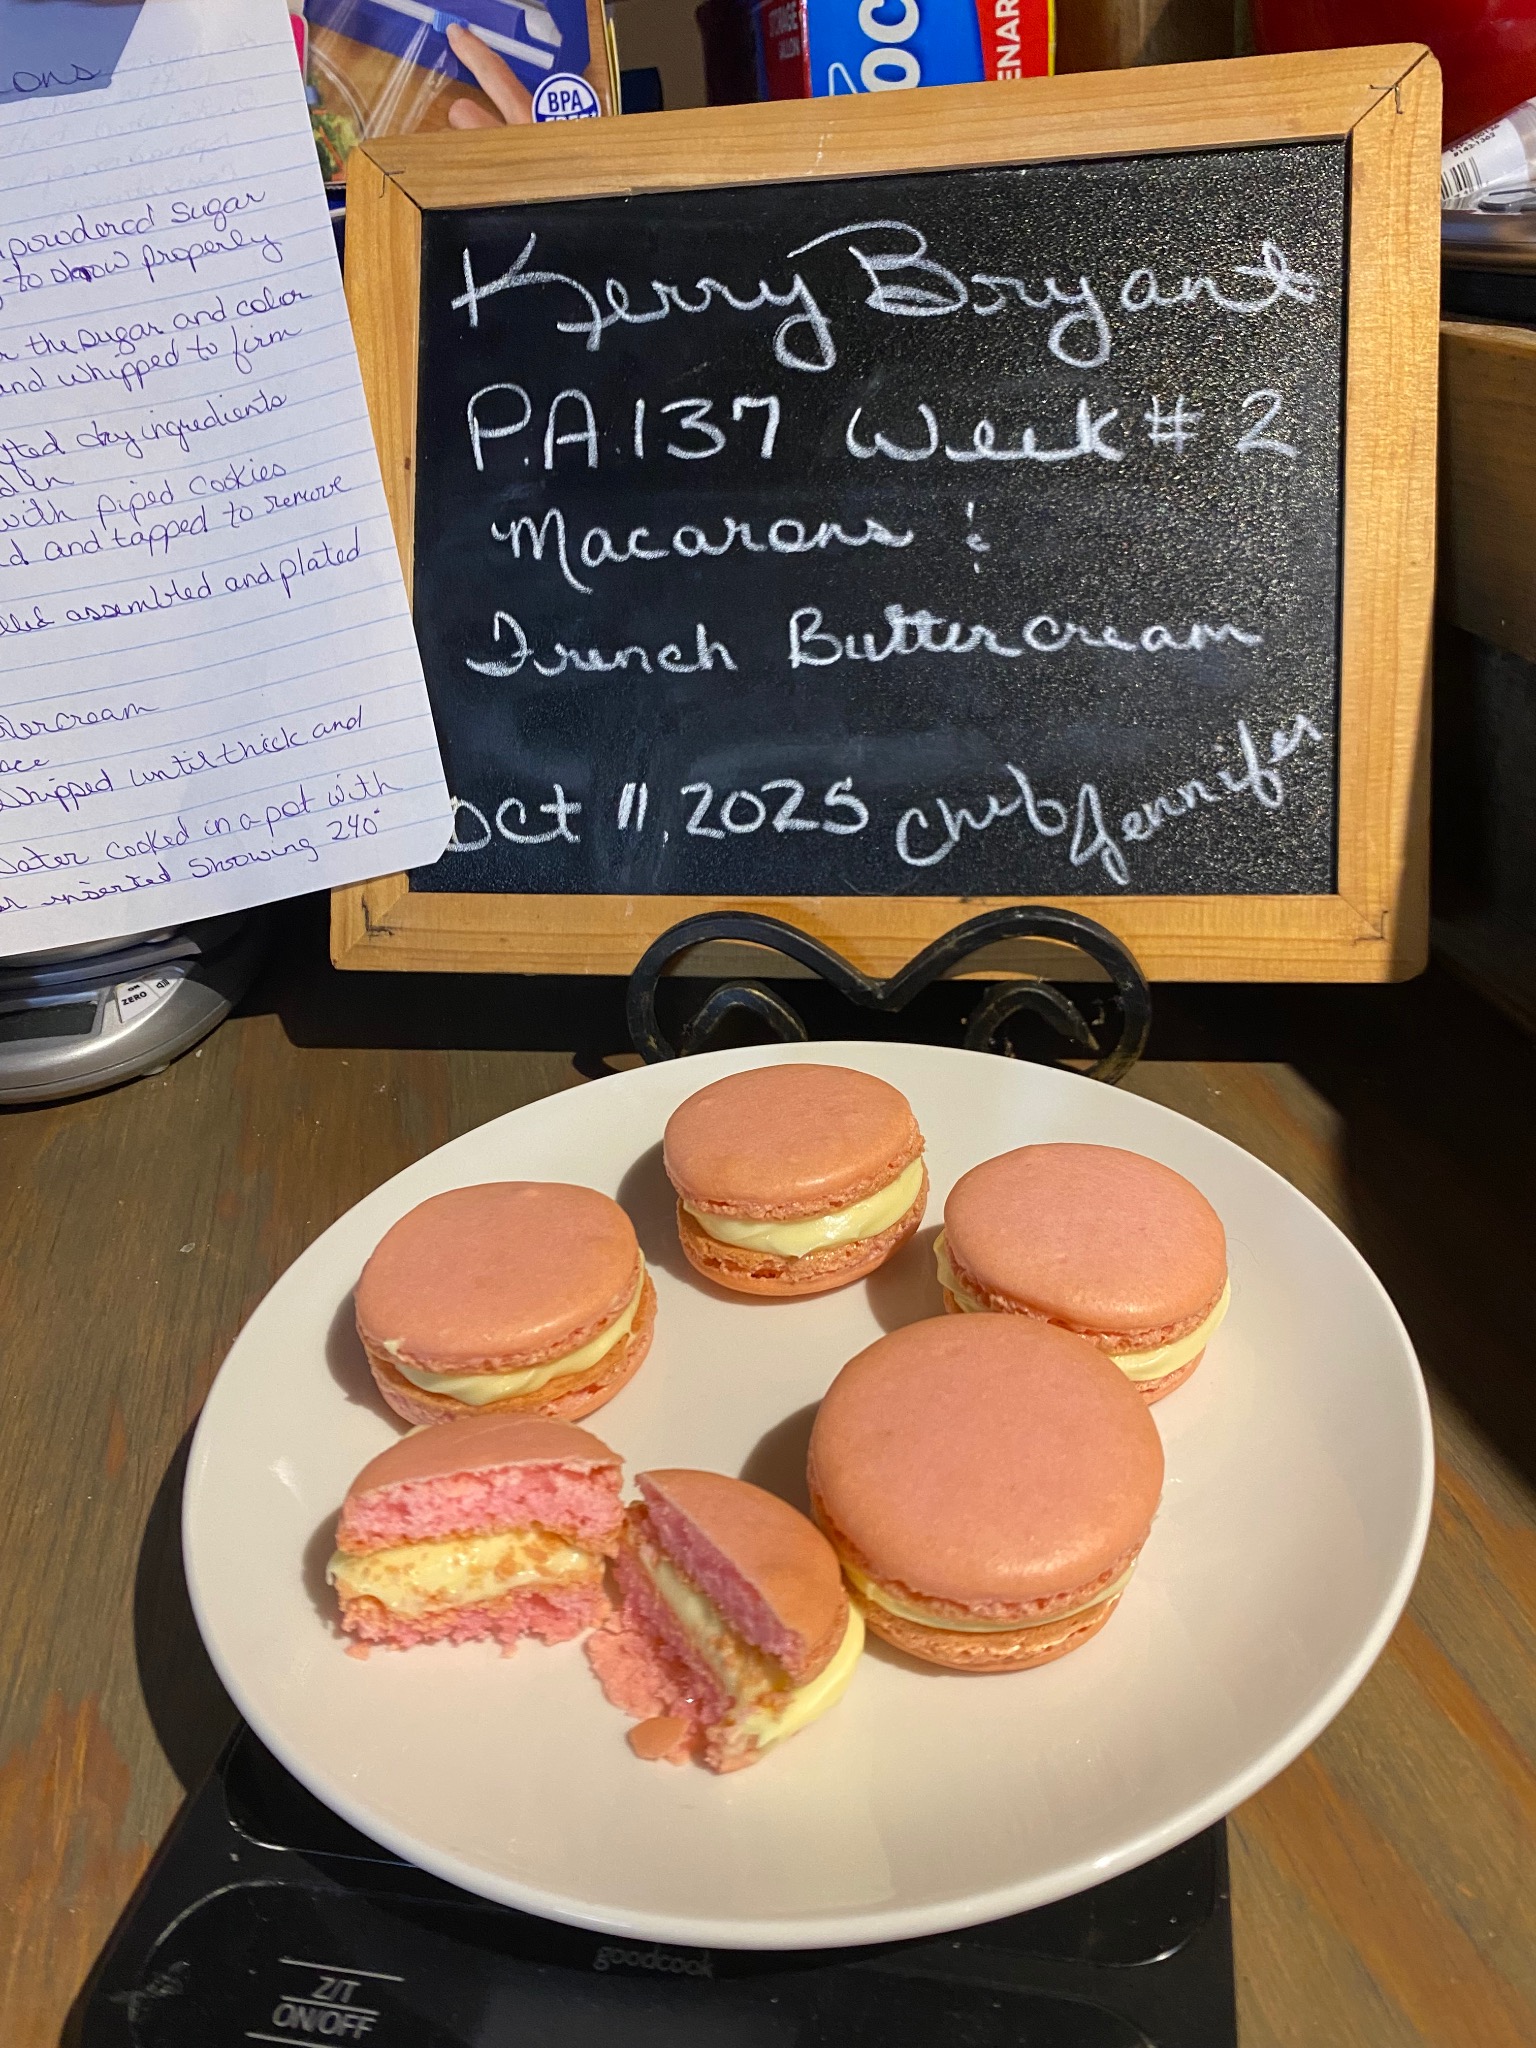 ons
powdered sugar
to show properly
the sugar and color
and whipped to firm
dry ingredients
with piped cookies
and tapped to remove
assembled and plated
ttercream
Whipped until thick and
Water cooked in a pot with
inserted showing 240°
BPA
FREE
STORAGE
GALLON
OC
ENAR
Kerry Bryant
P.A.137 Week # 2
Macarons &
French Buttercream
Oct 11, 2025 Chef Jennifer
ON
ZERO
goodcook
Z/T
ON/OFF